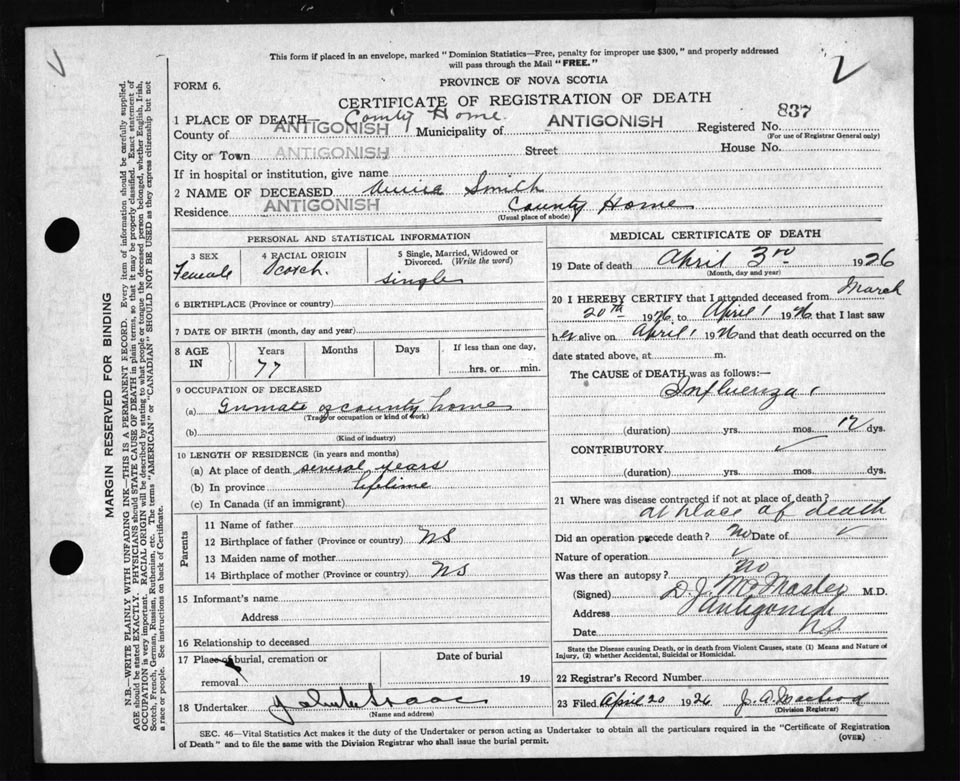 This form if placed in an envelope, marked "Dominion Statistics—Free, penalty for improper use $300," and properly addressed
will pass through the Mail "FREE."
FORM 6.
PROVINCE OF NOVA SCOTIA
CERTIFICATE OF REGISTRATION OF DEATH
1 PLACE OF DEATH— County Home.
County of ANTIGONISH Municipality of ANTIGONISH Registered No. 837
(For use of Registrar General only)
City or Town ANTIGONISH Street House No.
If in hospital or institution, give name
2 NAME OF DECEASED Smith
Residence ANTIGONISH County Home
(Usual place of abode)
PERSONAL AND STATISTICAL INFORMATION
3 SEX
Female
4 RACIAL ORIGIN
Scotch.
5 Single, Married, Widowed or Divorced. (Write the word)
single
6 BIRTHPLACE (Province or country)
7 DATE OF BIRTH (month, day and year)
8 AGE IN Years Months Days If less than one day,
77 hrs. or min.
9 OCCUPATION OF DECEASED
(a) Inmate of county home
(Trade or occupation or kind of work)
(b)
(Kind of industry)
10 LENGTH OF RESIDENCE (in years and months)
(a) At place of death several years
(b) In province lifetime
(c) In Canada (if an immigrant)
Parents
11 Name of father
12 Birthplace of father (Province or country) NS
13 Maiden name of mother
14 Birthplace of mother (Province or country) NS
15 Informant's name
Address
16 Relationship to deceased
17 Place of burial, cremation or Date of burial
removal 19
18 Undertaker
(Name and address)
MEDICAL CERTIFICATE OF DEATH
19 Date of death April 3rd 1926
(Month, day and year)
20 I HEREBY CERTIFY that I attended deceased from March
20th 1926 to April 1 1926 that I last saw
her alive on April 1 1926 and that death occurred on the
date stated above, at m.
The CAUSE of DEATH was as follows:
Influenza
(duration) yrs. mos. 12 dys.
CONTRIBUTORY ✓
(duration) yrs. mos. dys.
21 Where was disease contracted if not at place of death?
at place of death
Did an operation precede death? No Date of ✓
Nature of operation ✓
Was there an autopsy? No
(Signed) M.D.
Address Antigonish
Date NS
State the Disease causing Death, or in death from Violent Causes, state (1) Means and Nature of
Injury, (2) whether Accidental, Suicidal or Homicidal.
22 Registrar's Record Number
23 Filed April 20 1926 J. A. Macleod
(Division Registrar)
SEC. 46—Vital Statistics Act makes it the duty of the Undertaker or person acting as Undertaker to obtain all the particulars required in the "Certificate of Registration
of Death" and to file the same with the Division Registrar who shall issue the burial permit.
(OVER)
MARGIN RESERVED FOR BINDING
N.B.—WRITE PLAINLY WITH UNFADING INK—THIS IS A PERMANENT RECORD. Every item of information should be carefully supplied.
AGE should be stated EXACTLY. PHYSICIANS should STATE CAUSE OF DEATH in plain terms, so that it may be properly classified. Exact statement of
OCCUPATION is very important. RACIAL ORIGIN will be described by stating to what people or tongue the deceased person belonged, whether English, Irish,
Scotch, French, German, Russian, Ruthenian, etc. The terms "AMERICAN" or "CANADIAN" SHOULD NOT BE USED as they express citizenship but not
a race or people. See instructions on back of Certificate.